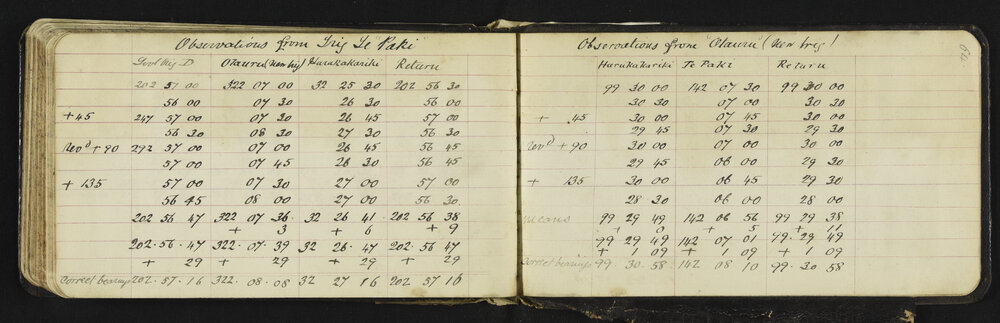 Observations from Trig Te Paki
Govt Trig D Otauru (New trig) Hurukakariki Return
202 57 00 322 07 00 32 25 30 202 56 30
56 00 07 30 26 30 56 00
+45 247 57 00 07 30 26 45 57 00
56 30 08 30 27 30 56 30
Revd + 90 292 57 00 07 00 26 45 56 45
57 00 07 45 26 30 56 45
+ 135 57 00 07 30 27 00 57 00
56 45 08 00 27 00 56 30
202 56 47 322 07 36 32 26 41 202 56 38
+ 3 + 6 + 9
202 56 47 322 07 39 32 26 47 202 56 47
+ 29 + 29 + 29 + 29
Correct bearings 202 57 16 322 08 08 32 27 16 202 57 16
Observations from "Otauru" (New trig)
Hurukakariki Te Paki Return
99 30 00 142 07 30 99 30 00
30 30 07 00 30 30
+ 45 30 00 07 45 30 00
29 45 07 30 29 30
Revd + 90 30 00 07 00 30 00
29 45 06 00 29 30
+ 135 30 00 06 45 29 30
28 30 06 00 28 00
Means 99 29 49 142 06 56 99 29 38
+ 0 + 5 + 11
99 29 49 142 07 01 99 29 49
+ 1 09 + 1 09 + 1 09
Correct bearings 99 30 58 142 08 10 99 30 58